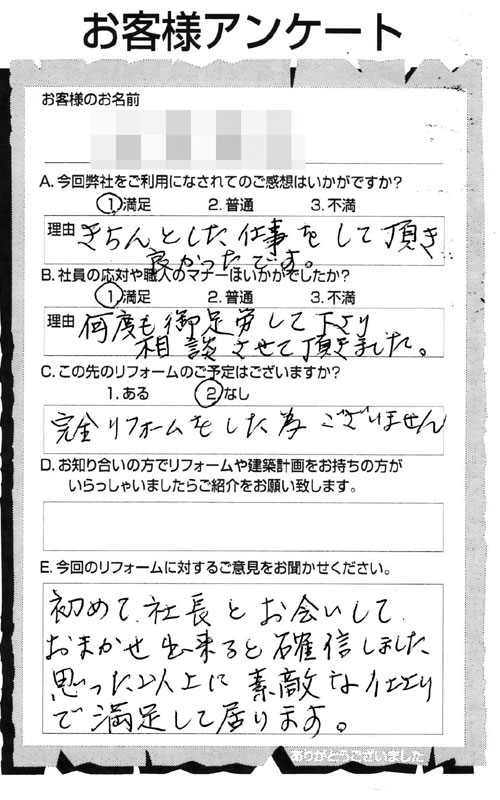 お客様アンケート
お客様のお名前
A. 今回弊社をご利用になされてのご感想はいかがですか?
1. 満足 2. 普通 3. 不満
理由 きちんとした仕事をして頂き
良かったです。
B. 社員の応対や職人のマナーはいかがでしたか?
1. 満足 2. 普通 3. 不満
理由 何度も御足労して下さり
相談させて頂きました。
C. この先のリフォームのご予定はございますか?
1. ある 2. なし
完全リフォームをした為ございません
D. お知り合いの方でリフォームや建築計画をお持ちの方が
いらっしゃいましたらご紹介をお願い致します。
E. 今回のリフォームに対するご意見をお聞かせください。
初めて、社長とお会いして
おまかせ出来ると確信しました
思った以上に素敵な仕上り
で満足して居ります。
ありがとうございました